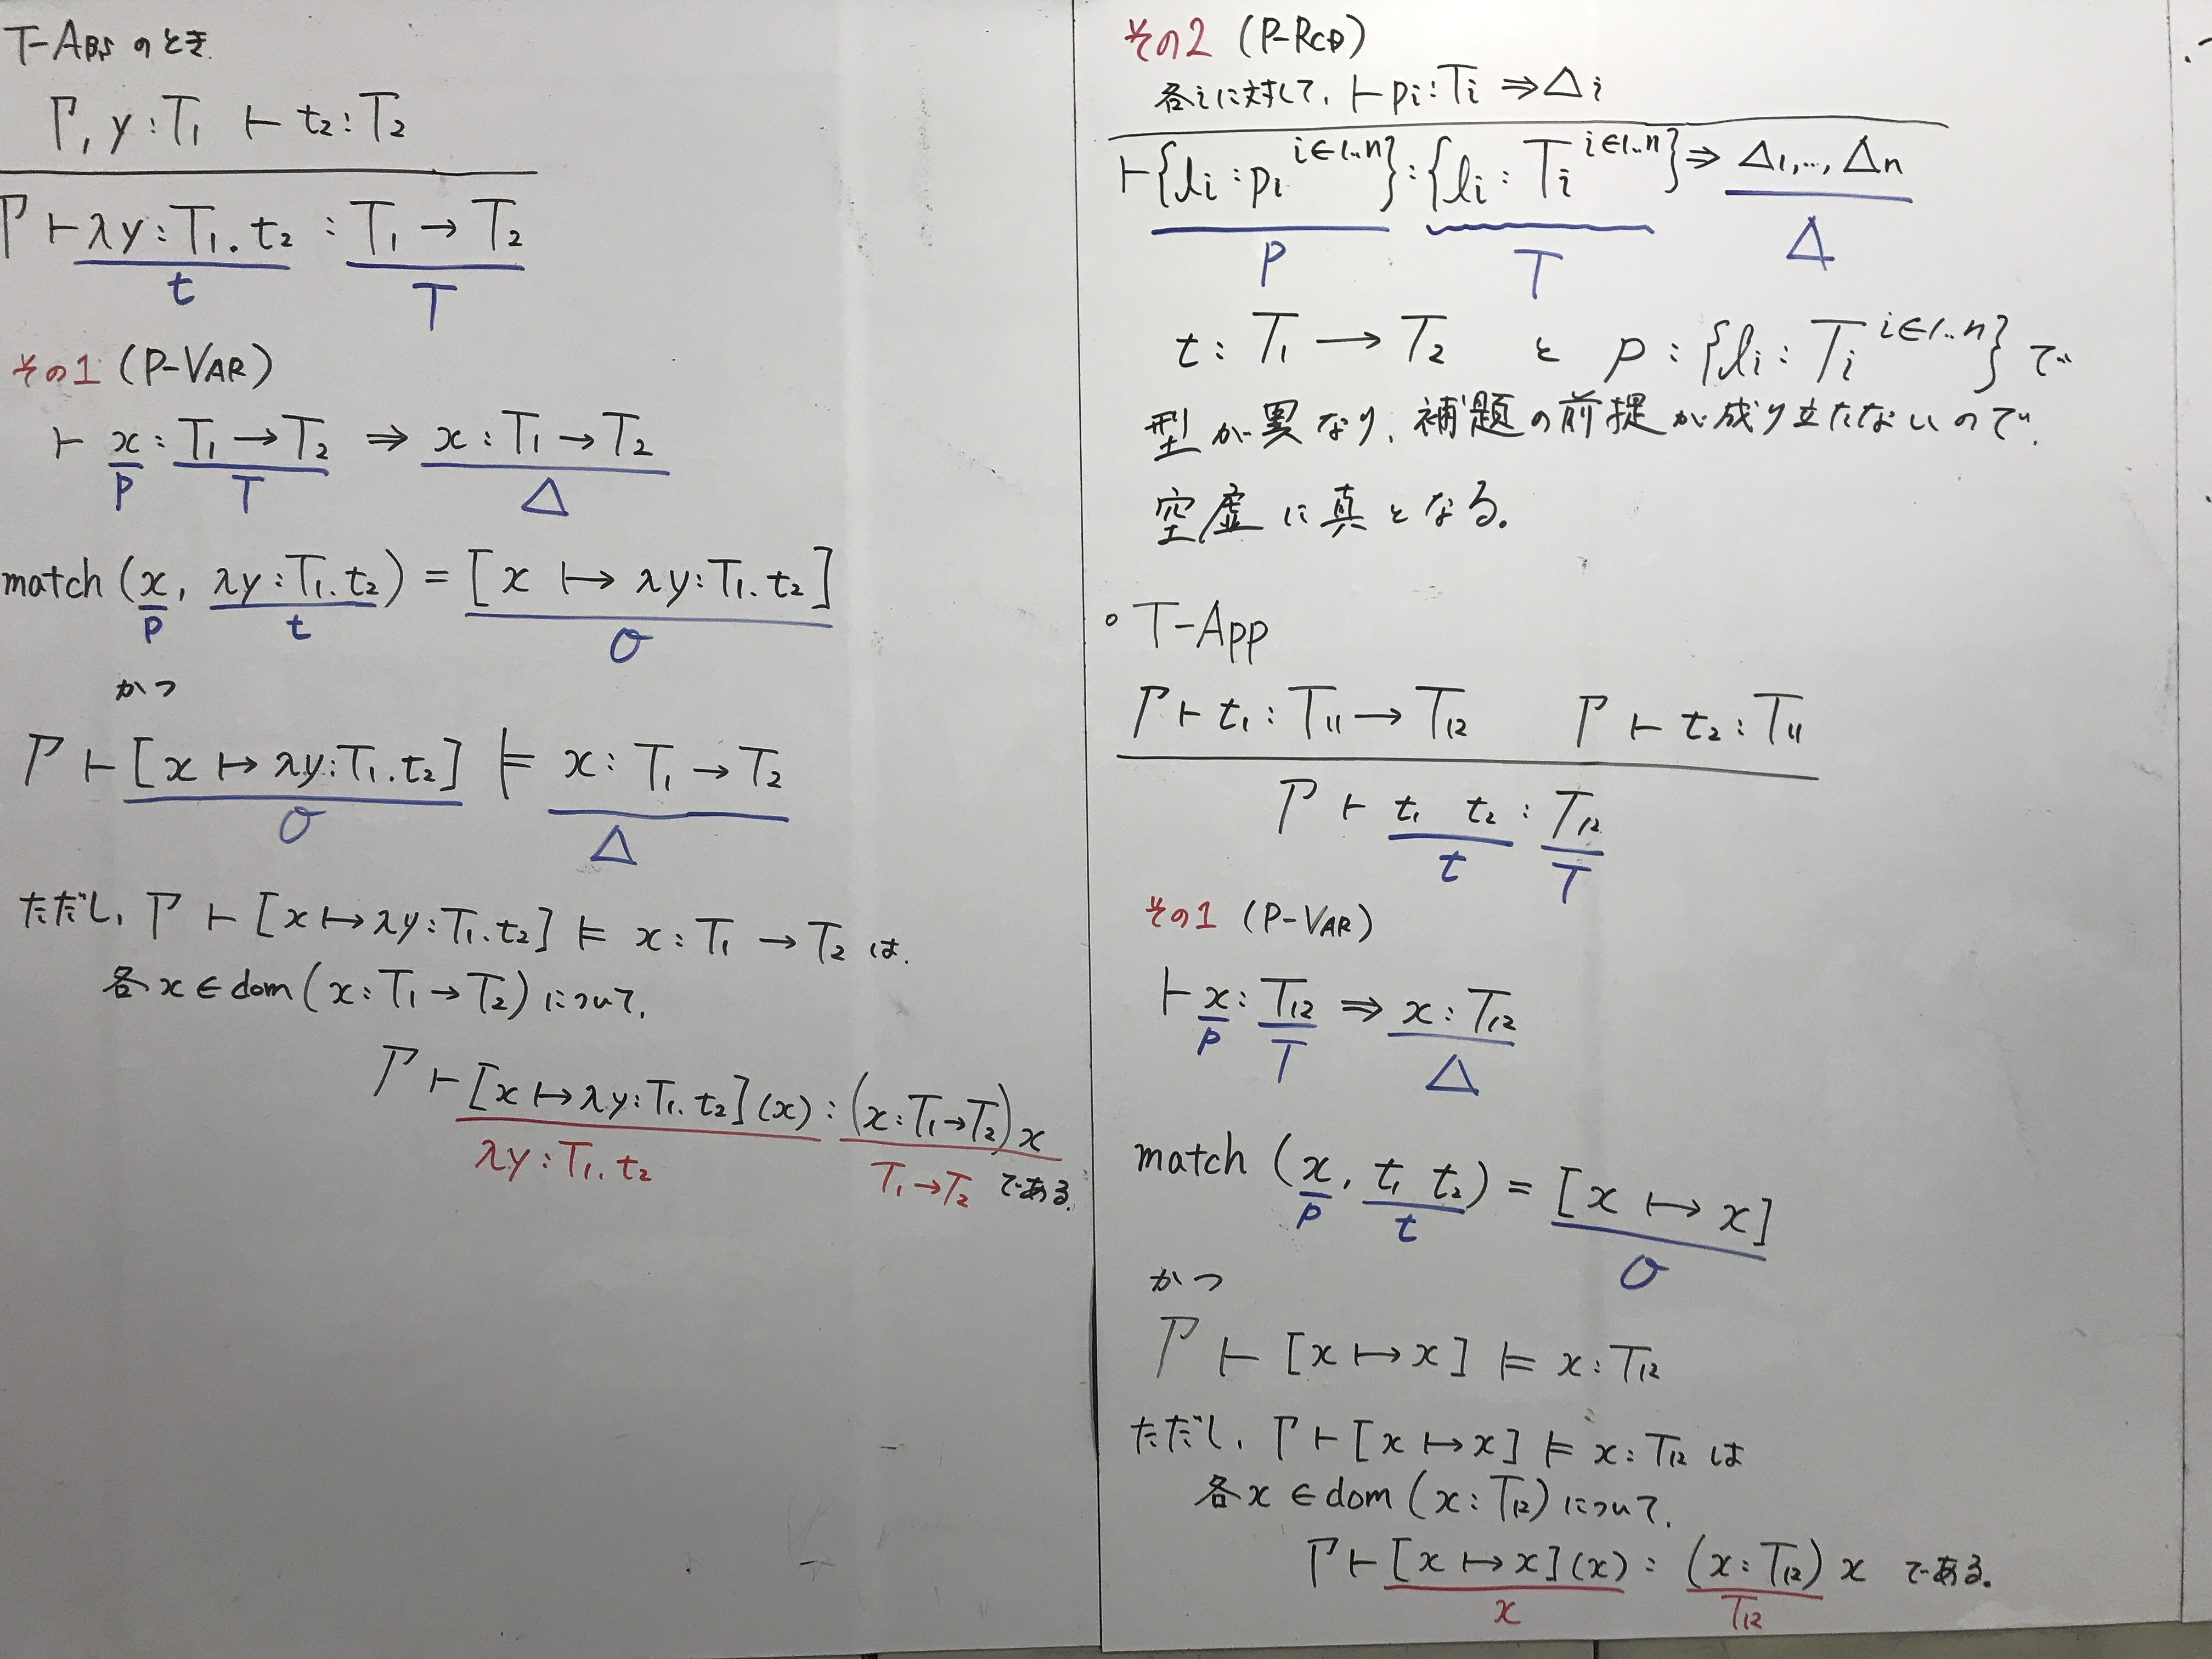 T-ABS のとき
Γ, y : T₁ ⊢ t₂ : T₂
Γ ⊢ λy : T₁. t₂ : T₁ → T₂
t T
その1 (P-VAR)
⊢ x : T₁ → T₂ ⇒ x : T₁ → T₂
p T Δ
match (x, λy : T₁. t₂) = [x ↦ λy : T₁. t₂]
p t σ
かつ
Γ ⊢ [x ↦ λy : T₁. t₂] ⊨ x : T₁ → T₂
σ Δ
ただし, Γ ⊢ [x ↦ λy : T₁. t₂] ⊨ x : T₁ → T₂ は,
各 x ∈ dom (x : T₁ → T₂) について,
Γ ⊢ [x ↦ λy : T₁. t₂] (x) : (x : T₁ → T₂) x
λy : T₁. t₂ T₁ → T₂ である.
その2 (P-RCD)
各iに対して, ⊢ pᵢ : Tᵢ ⇒ Δᵢ
⊢ {lᵢ : pᵢ i∈1..n} : {lᵢ : Tᵢ i∈1..n} ⇒ Δ₁, ..., Δn
p T Δ
t : T₁ → T₂ と p : {lᵢ : Tᵢ i∈1..n} で
型が異なり, 補題の前提が成り立たないので,
空虚に真となる.
○ T-App
Γ ⊢ t₁ : T₁₁ → T₁₂ Γ ⊢ t₂ : T₁₁
Γ ⊢ t₁ t₂ : T₁₂
t T
その1 (P-VAR)
⊢ x : T₁₂ ⇒ x : T₁₂
p T Δ
match (x, t₁ t₂) = [x ↦ x]
p t σ
かつ
Γ ⊢ [x ↦ x] ⊨ x : T₁₂
ただし, Γ ⊢ [x ↦ x] ⊨ x : T₁₂ は
各 x ∈ dom (x : T₁₂) について,
Γ ⊢ [x ↦ x] (x) : (x : T₁₂) x である.
x T₁₂